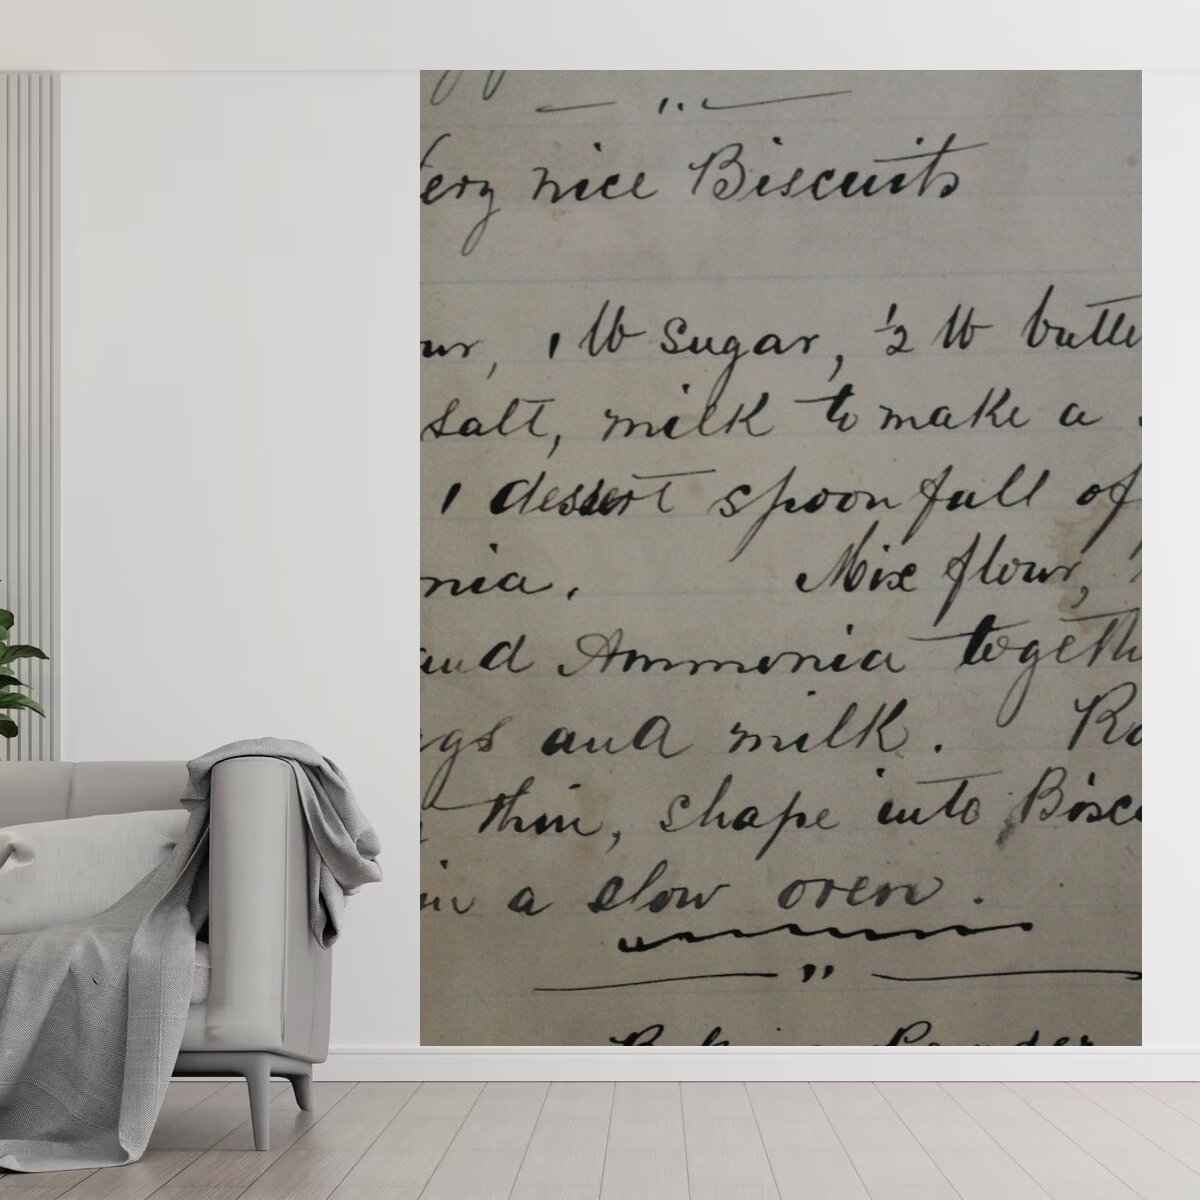 ery nice Biscuits
ur, 1 lb sugar, ½ lb butte
salt, milk to make a
1 dessert spoon full of
nia. Mix flour,
and Ammonia togeth
gs and milk. Ro
thin, shape into Bisc
in a slow oven.
Baking Powder